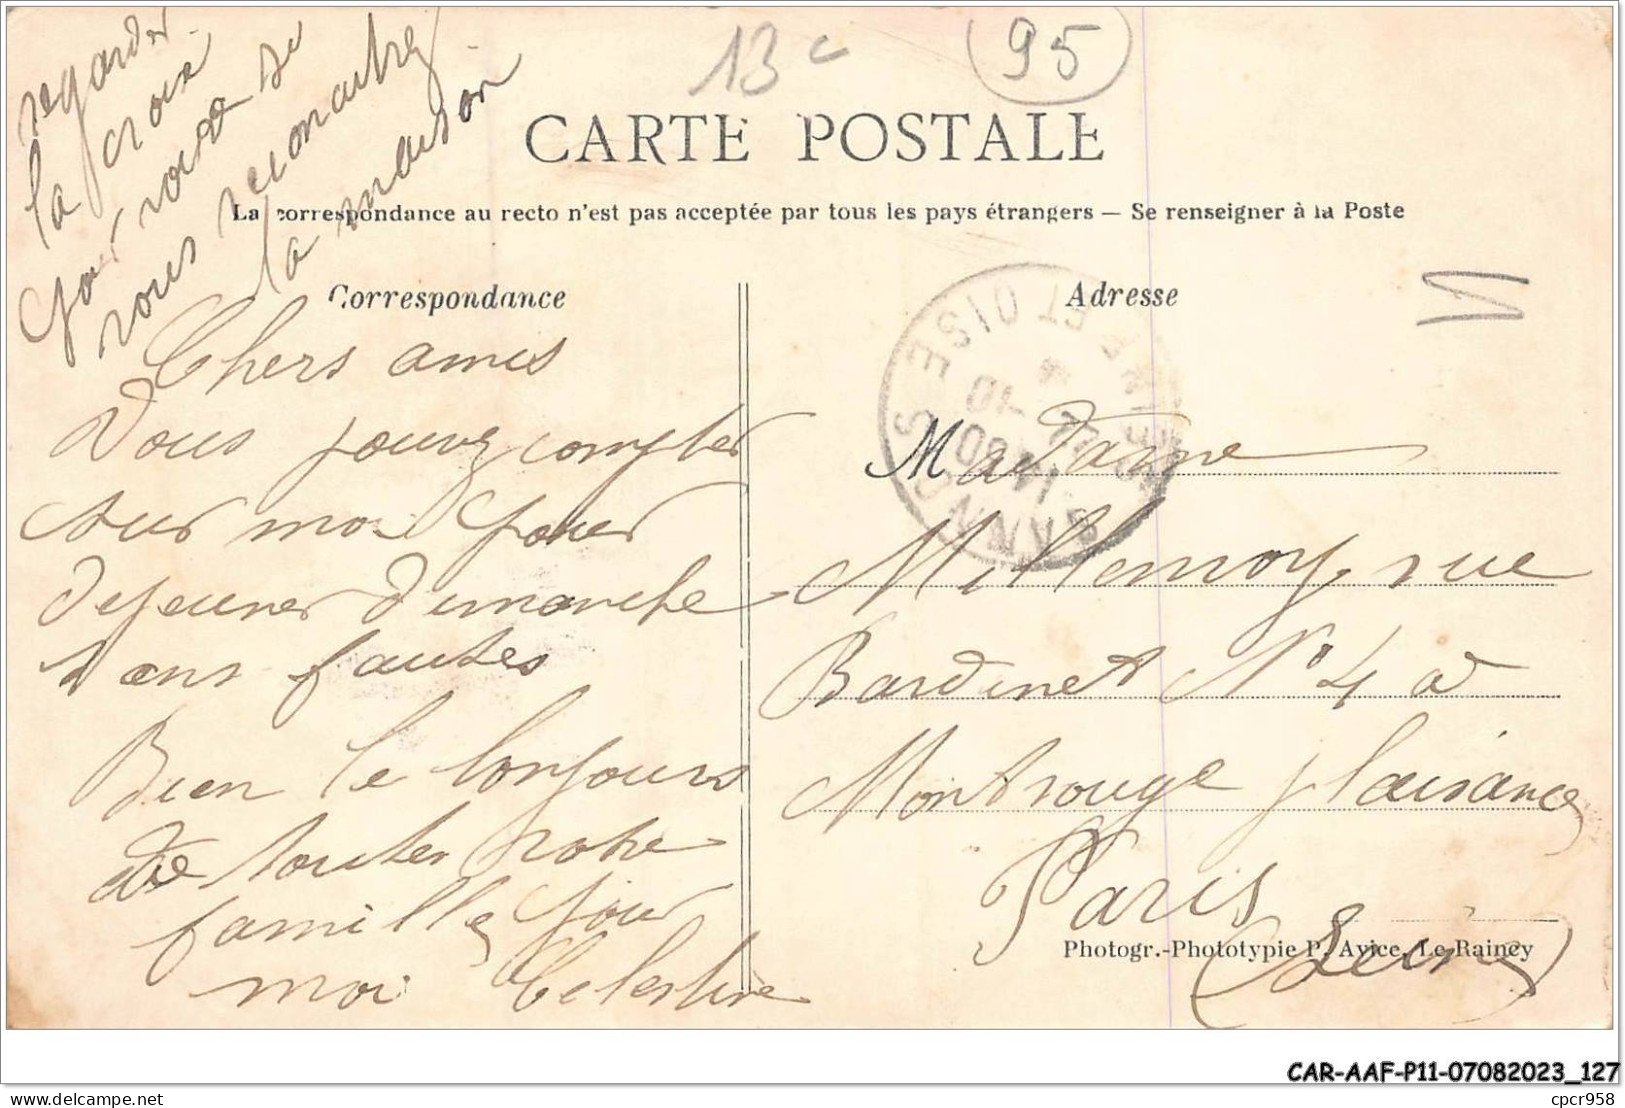 regarder
la croix
pour vous
vous reconaitre
la maison
13 c
95
CARTE POSTALE
La correspondance au recto n'est pas acceptée par tous les pays étrangers — Se renseigner à la Poste
Correspondance
Chers amis
Vous pouvez compter
sur moi pour
dejeuner dimanche
sans fautes
Bien le bonjours
de toutes votre
famille pour
moi Celestine
Adresse
ET OISE
10
Madame
Millemoy, rue
Bardinet N° 4 à
Montrouge plaisance
Paris
(Seine)
Photogr.-Phototypie P. Avice, Le Raincy
CAR-AAF-P11-07082023_127
delcampe.net
cpcr958